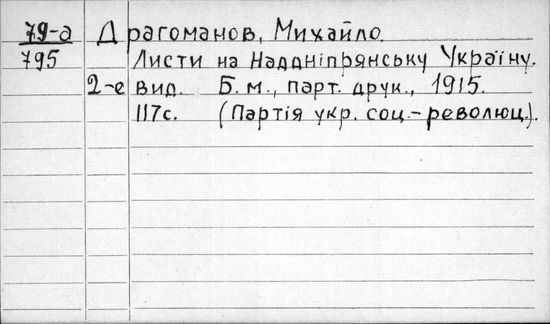 79-а Драгоманов, Михайло.
795 Листи на Наддніпрянську Україну.
2-е вид. Б.м., парт. друк., 1915.
117с. (Партія укр. соц.-революц.).